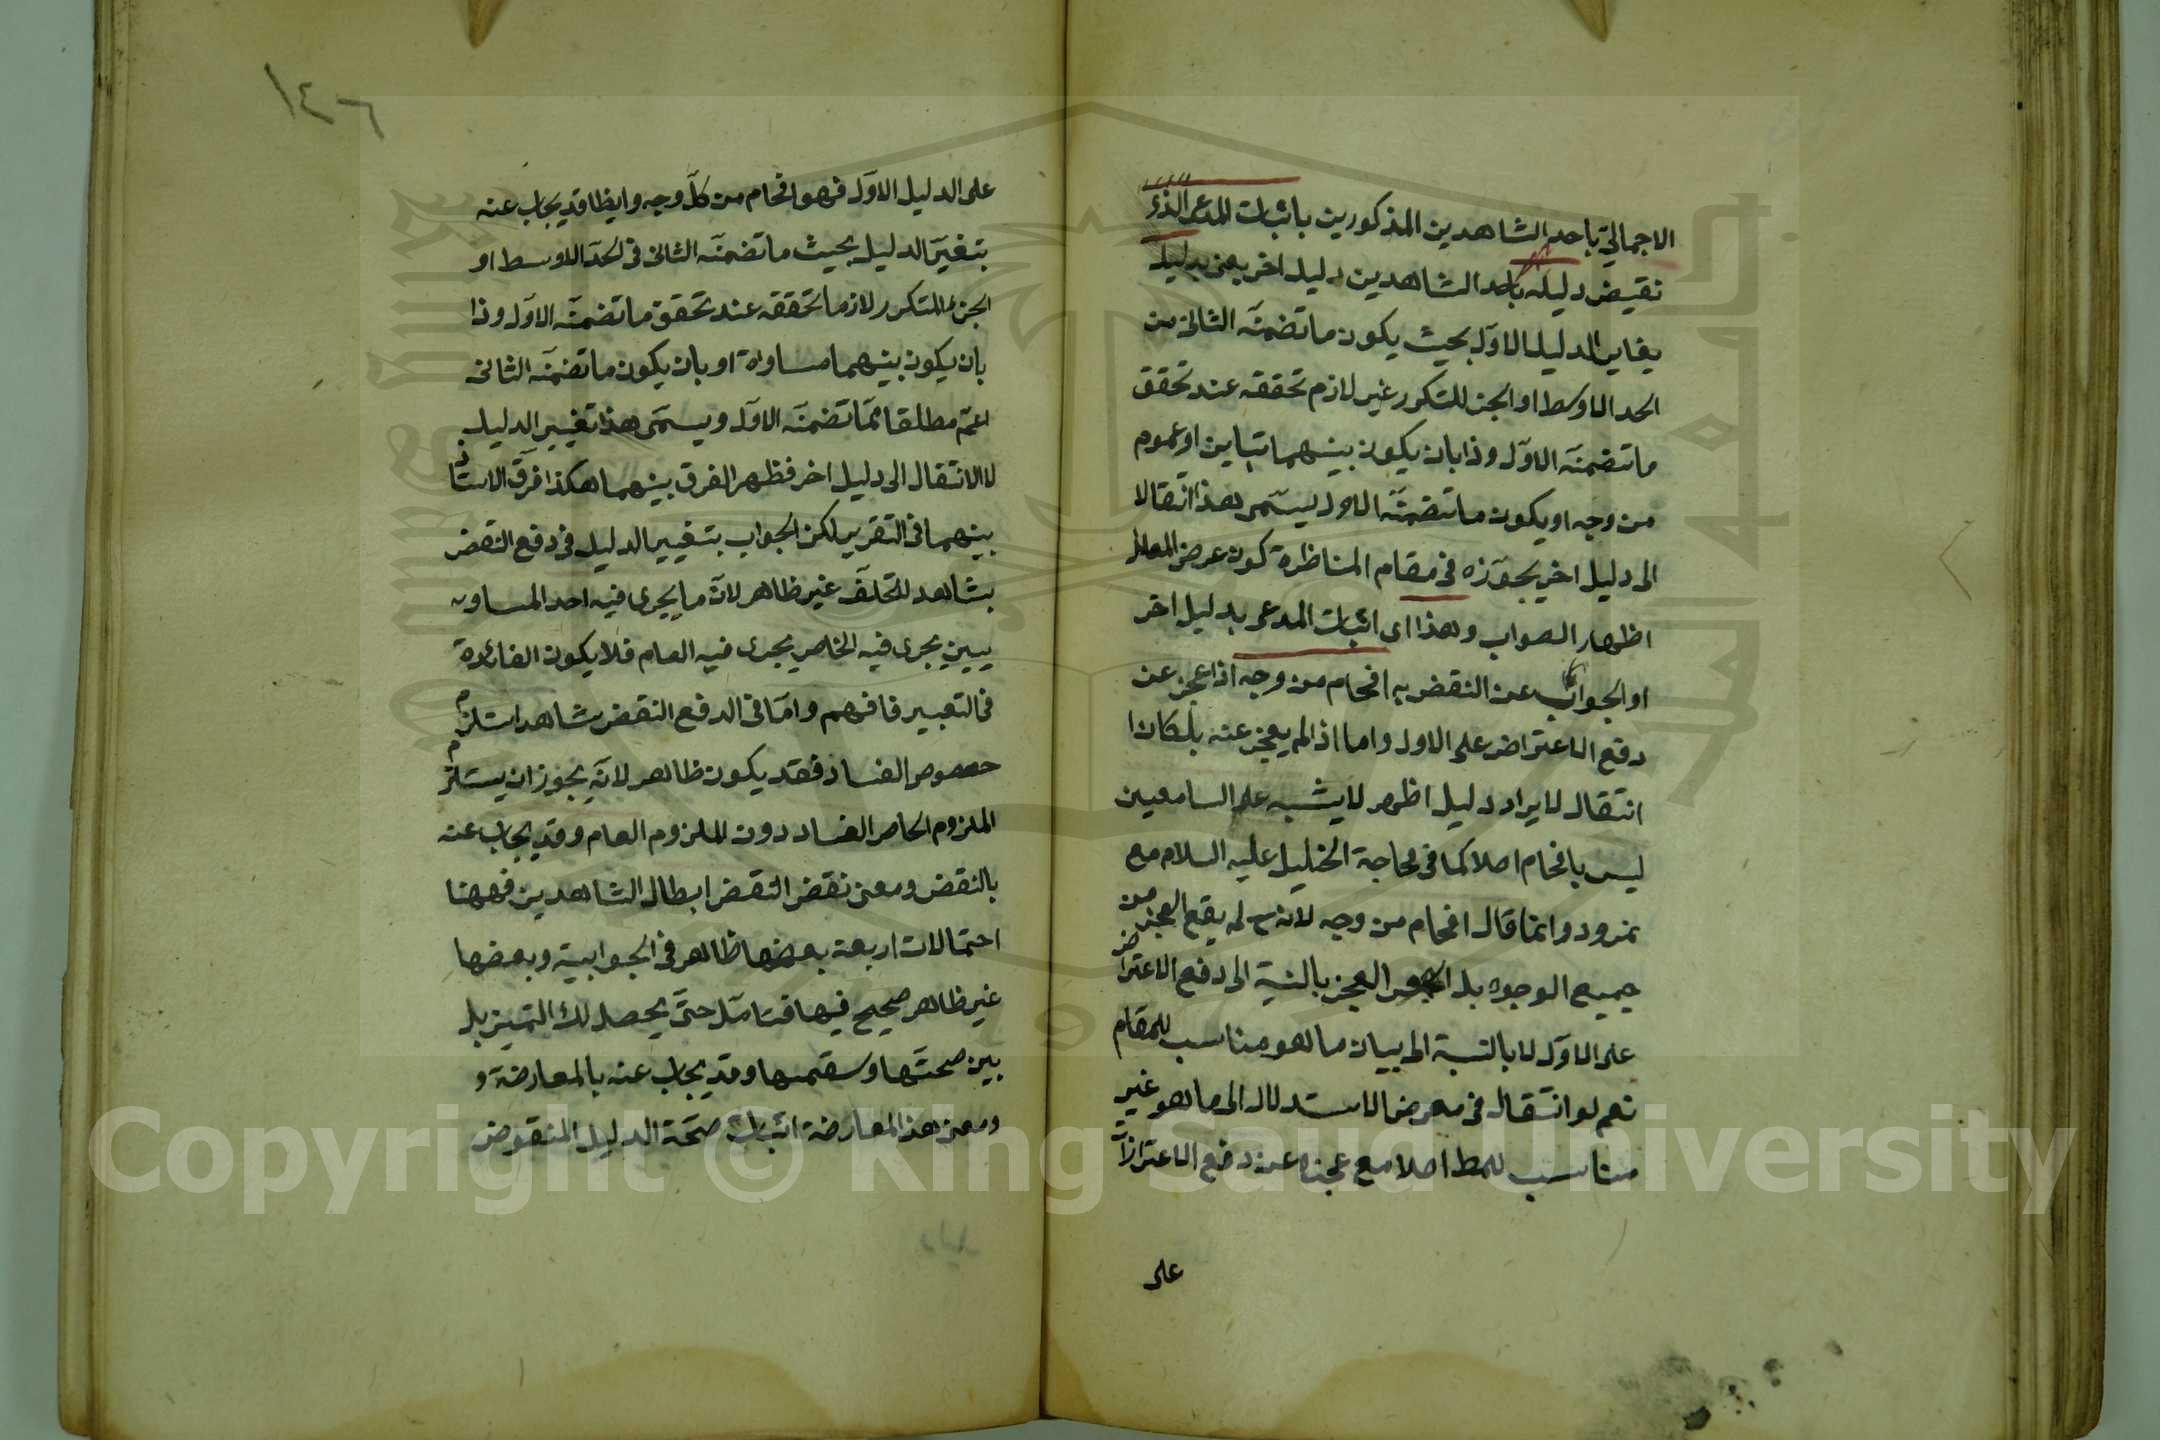 الاجمالي باحد الشاهدين المذكورين باثبات المدعى الذى
نقيض دليله باحد الشاهدين دليل اخر يعنى بدليل
يغاير الدليل الاول بحيث يكون ما تضمنه الثانى من
الحد الاوسط او الجزء المتكرر غير لازم تحققه عند تحقق
ما تضمنه الاول وذا بان يكون بينهما تباين او عموم
من وجه او يكون ما تضمنه الاول يسمى هذا انتقالا
الى دليل اخر يجوزه فى مقام المناظرة كون عرض المعلل
اظهار الصواب وهذا اى اثبات المدعى بدليل اخر
او الجواب عن النقض به افحام من وجه اذا عجز عن
دفع الاعتراض على الاول واما اذا لم يعجز عنه بل كان
انتقال لايراد دليل اظهر لا يشبه على السامعين
ليس بافحام اصلا كما فى محاجة الخليل عليه السلام مع
نمرود وانما قال افحام من وجه لانه ح لم يقع العجز من
جميع الوجوه بل العجز بالنسبة الى دفع الاعتراض
على الاول لا بالنسبة الى بيان ما هو مناسب للمقام
نعم لو انتقال فى معرض الاستدلال الى ما هو غير
مناسب للمط اصلا مع عجزه عن دفع الاعتراض
على
١٤٦
على الدليل الاول فهو افحام من كل وجه وايضا قد يجاب عنه
بتغير الدليل بحيث ما تضمنه الثانى فى الحد الاوسط او
الجزء المتكرر لازما تحققه عند تحقق ما تضمنه الاول وذا
بان يكون بينهما مساواة او بان يكون ما تضمنه الثانى
اعم مطلقا مما تضمنه الاول ويسمى هذا تغيير الدليل
لا الانتقال الى دليل اخر فظهر الفرق بينهما هكذا فرق الاستاذ
بينهما فى التقرير لكن الجواب بتغيير الدليل فى دفع النقض
بشاهد التخلف غير ظاهر لان ما يجرى فيه احد المساويين
يجرى فيه الخاص يجرى فيه العام فلا يكون الفائدة
فى التعبير فافهم واما فى الدفع النقض بشاهد استلزام
خصوص الفساد فقد يكون ظاهر لانه يجوز ان يستلزم
الملزوم الخاص الفساد دون الملزوم العام وقد يجاب عنه
بالنقض ومعنى نقض النقض ابطال الشاهدين فههنا
احتمالات اربعة بعضها ظاهر فى الجوابية وبعضها
غير ظاهر صحيح فيها فتامل حتى يحصل لك التميز بل
بين صحتها وسقمها وقد يجاب عنه بالمعارضة و
ومعنى هذا المعارضة اثبات صحة الدليل المنقوض
Copyright © King Saud University